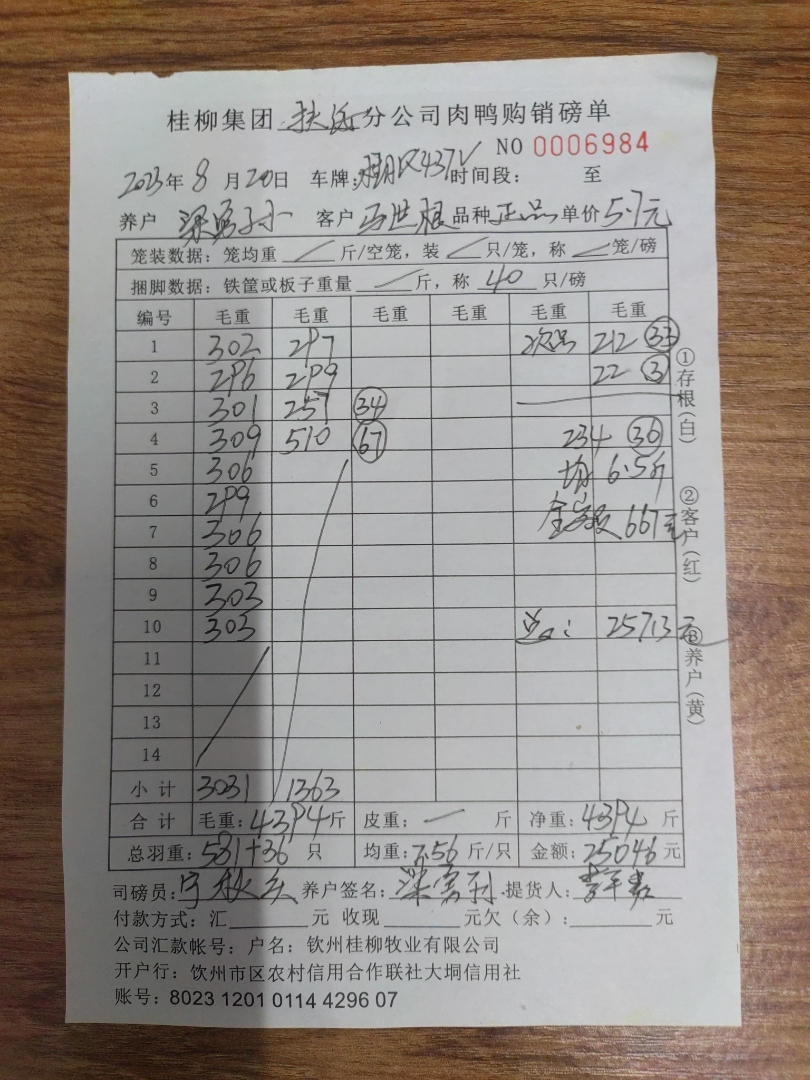 桂柳集团 扶绥 分公司肉鸭购销磅单
NO 0006984
2023年 8 月 20日 车牌: 437V 时间段: 至
养户 梁 小 客户 马世根 品种 正品 单价 5.7元
笼装数据: 笼均重 / 斤/空笼, 装 / 只/笼, 称 / 笼/磅
捆脚数据: 铁筐或板子重量 / 斤, 称 40 只/磅
编号 毛重 毛重 毛重 毛重 毛重 毛重
1 302 297 次品 212 33
2 296 299 22 3
3 301 257 34
4 309 510 67 234 36
5 306 均 6.5斤
6 299 金额 667元
7 306
8 306
9 303
10 303 总: 25713元
11
12
13
14
小计 3031 1363
合计 毛重: 4394斤 皮重: — 斤 净重: 4394 斤
总羽重: 581+36 只 均重: 7.56 斤/只 金额: 25046 元
司磅员: 养户签名: 梁 提货人:
付款方式: 汇 元 收现 元欠(余): 元
公司汇款帐号: 户名: 钦州桂柳牧业有限公司
开户行: 钦州市区农村信用合作联社大垌信用社
账号: 8023 1201 0114 4296 07
①存根(白)
②客户(红)
③养户(黄)